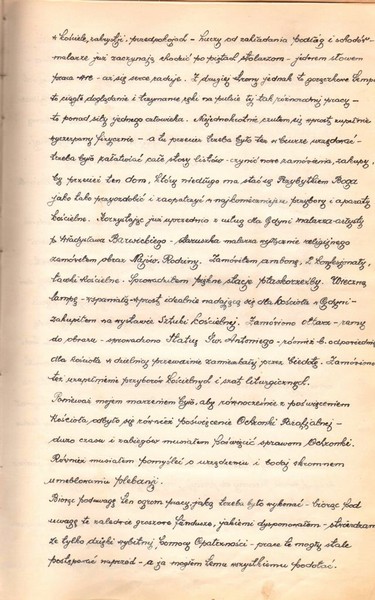 w kościele, zakrystji, przedpokojach - kurzy od zakładania podłóg i schodów -
malarze już zaczynają chodzić po piętach stolarzom - jednem słowem
praca wre - aż się serce raduje. Z drugiej strony jednak to gorączkowe tempo
to ciągłe doglądanie i trzymanie ręki na pulsie tej tak różnorodnej pracy -
to ponad siły jednego człowieka. Niejednokrotnie czułem się wprost zupełnie
wyczerpany fizycznie - a tu przecież trzeba było też w biurze urzędować -
trzeba było załatwiać całe stosy listów - czynić nowe zamówienia, zakupy,
by przecież ten dom, który niedługo ma stać się Przybytkiem Boga
jako tako przyozdobić i zaopatrzyć w najkonieczniejsze przybory i aparaty
kościelne. Korzystając już uprzednio z usług dla Gdyni malarza-artysty
p. Władysława Barwickiego - staruszka malarza wyłącznie religijnego
zamówiłem obraz Najśw. Rodziny. Zamówiłem, ambonę, 2 konfesjonały,
ławki kościelne. Sprowadziłem piękne stacje płaskorzeźby. Wieczną
lampę - wspaniałą wprost, idealnie nadającą się dla kościoła w Gdyni -
zakupiłem na wystawie Sztuki Kościelnej. Zamówiono ołtarz - ramy
do obrazu - sprowadzono Statuę Św. Antoniego - również b. odpowiednią
dla kościoła w dzielnicy przeważnie zamieszkałej przez biedotę. Zamówiono
też uzupełnienie przyborów kościelnych i szat liturgicznych.
Ponieważ mojem marzeniem było, aby równocześnie z poświęceniem
Kościoła odbyło się również poświęcenie Ochronki Parafjalnej -
dużo czasu i zabiegów musiałem poświęcić sprawom Ochronki.
Również musiałem pomyśleć o urządzeniu i bodaj skromnem
umeblowaniu plebanji.
Biorąc pod uwagę ten ogrom pracy, jaką trzeba było wykonać - biorąc pod
uwagę te zaledwie groszowe fundusze, jakiemi dysponowałem - stwierdzam
że tylko dzięki wybitnej pomocy Opatrzności - prace te mogły stale
postępować naprzód - a ja mogłem temu wszystkiemu podołać.